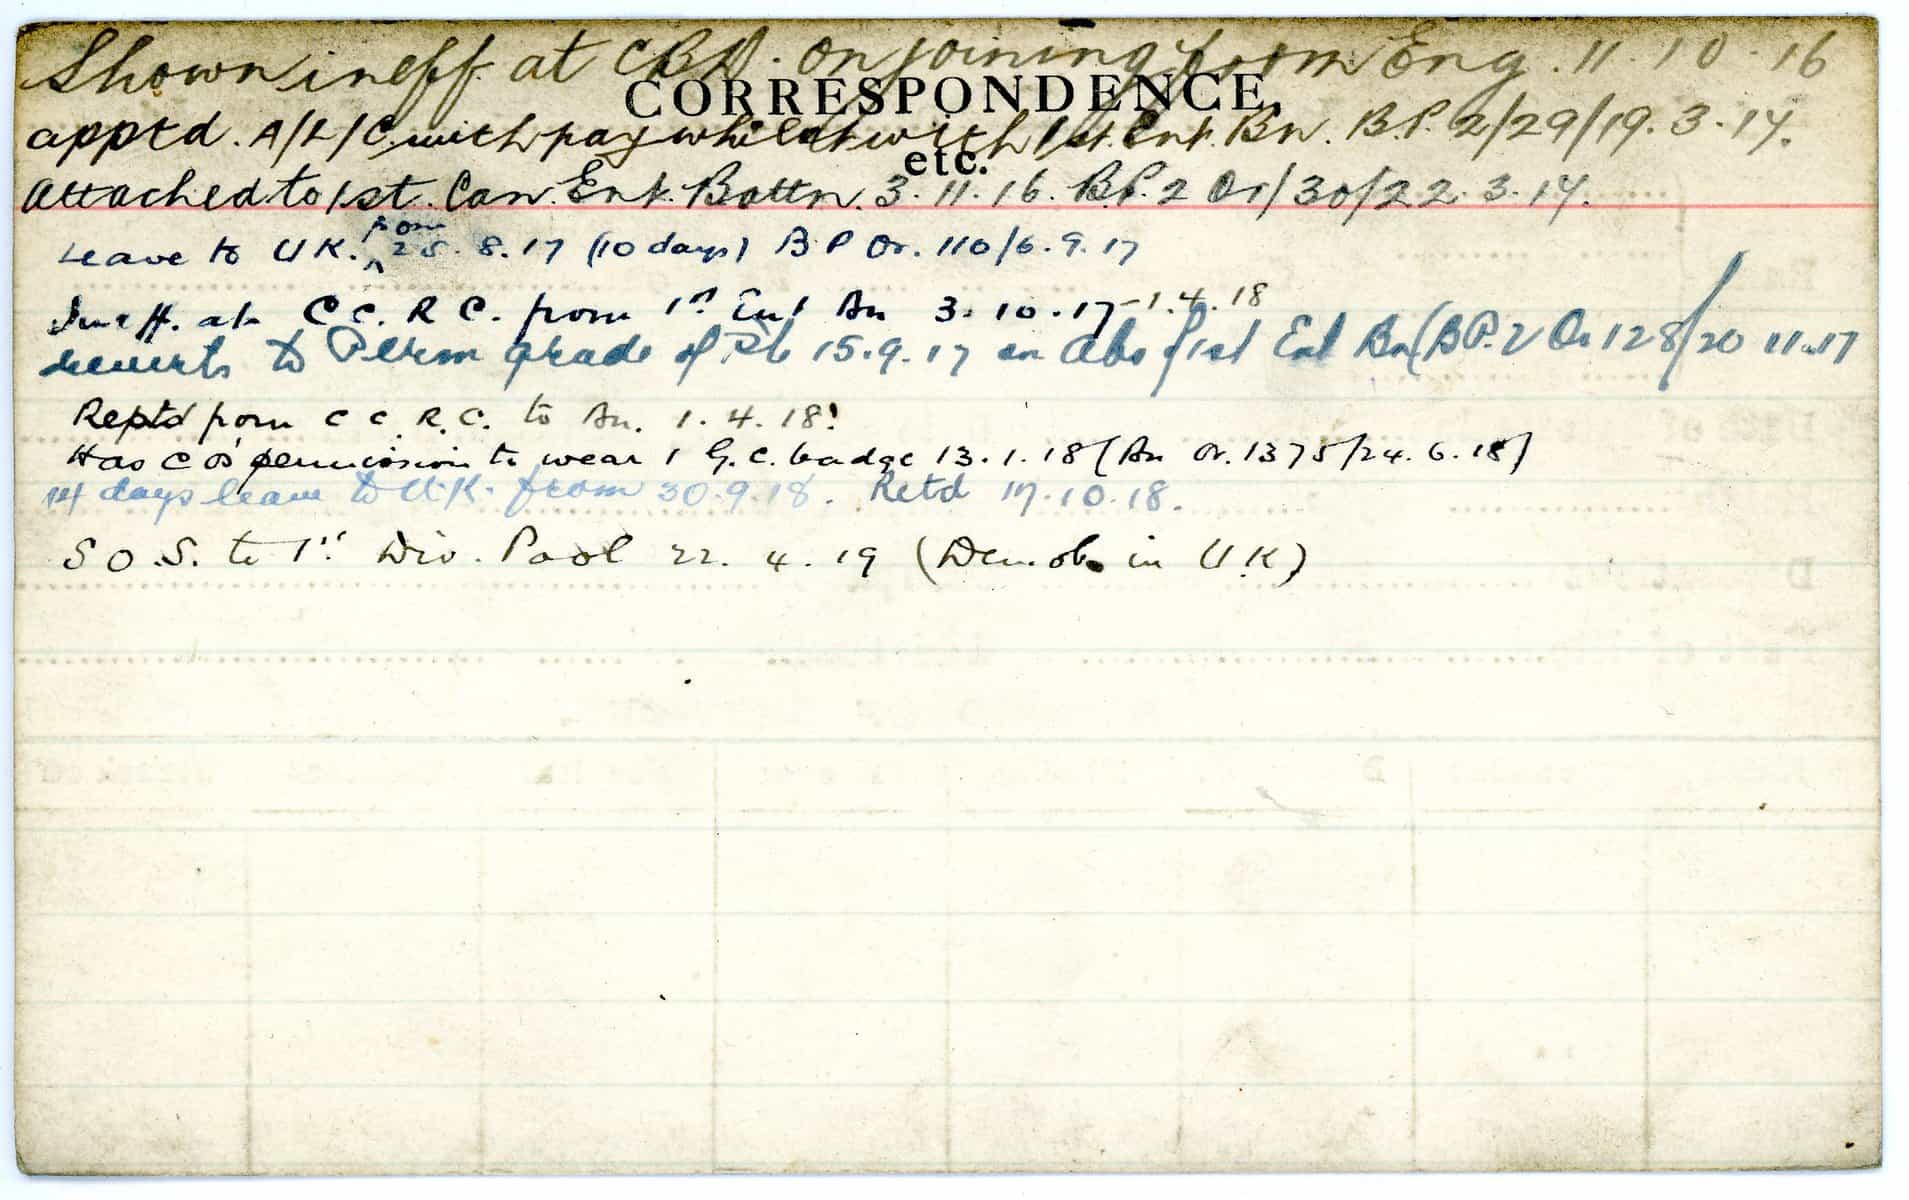 Shown ineff. at C.B.D. on joining from Eng. 11.10.16
CORRESPONDENCE,
apptd. A/L/C. with pay whilst with 1st. Ent. Bn. B.P. 2/29/19.3.17.
etc.
Attached to 1st. Can. Ent. Battn. 3.11.16. B.P. 2 Or/30/22.3.17.
Leave to U K. from 25.8.17 (10 days) B P Or. 110/6.9.17
Ineff. at C C. R C. from 1st Ent Bn 3.10.17-1.4.18
reverts to Perm grade of Pte 15.9.17 on Abs f 1st Ent Bn (B P. 2 Or 128/20 11.17
Reptd from C C. R. C. to Bn. 1.4.18.
Has C O's permission to wear 1 G.C. badge 13.1.18 (Bn Or. 1375/24.6.18)
14 days leave to U.K. from 30.9.18. Retd 17.10.18.
S O. S. to 1st Div. Pool 22.4.19 (Demob. in U.K)